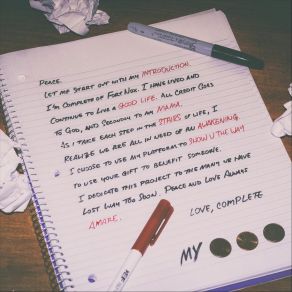 Peace.
Let me start out with my Introduction.
I'm Complete of Fort Nox. I have lived and
Continue to Live a Good Life. All Credit Goes
To God, and Secondly to my Mama.
As I take each step in the Stairs of Life, I
Realize we are all in need of an Awakening.
I choose to use my platform to Show U the Way
To use your gift to benefit someone.
I dedicate this project to the many we have
Lost Way Too Soon. Peace and Love Always
Amare.
Love, Complete
My